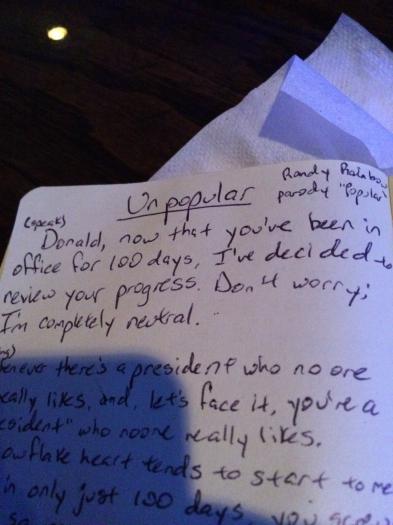 Unpopular
Randy Rainbow
parody "Popular"
(speak)
Donald, now that you've been in
office for 100 days, I've decided to
review your progress. Don't worry;
I'm completely neutral.
there's a president who no one
likes, and, let's face it, you're a
who noone really likes.
heart tends to start to
in only just 100 days, you